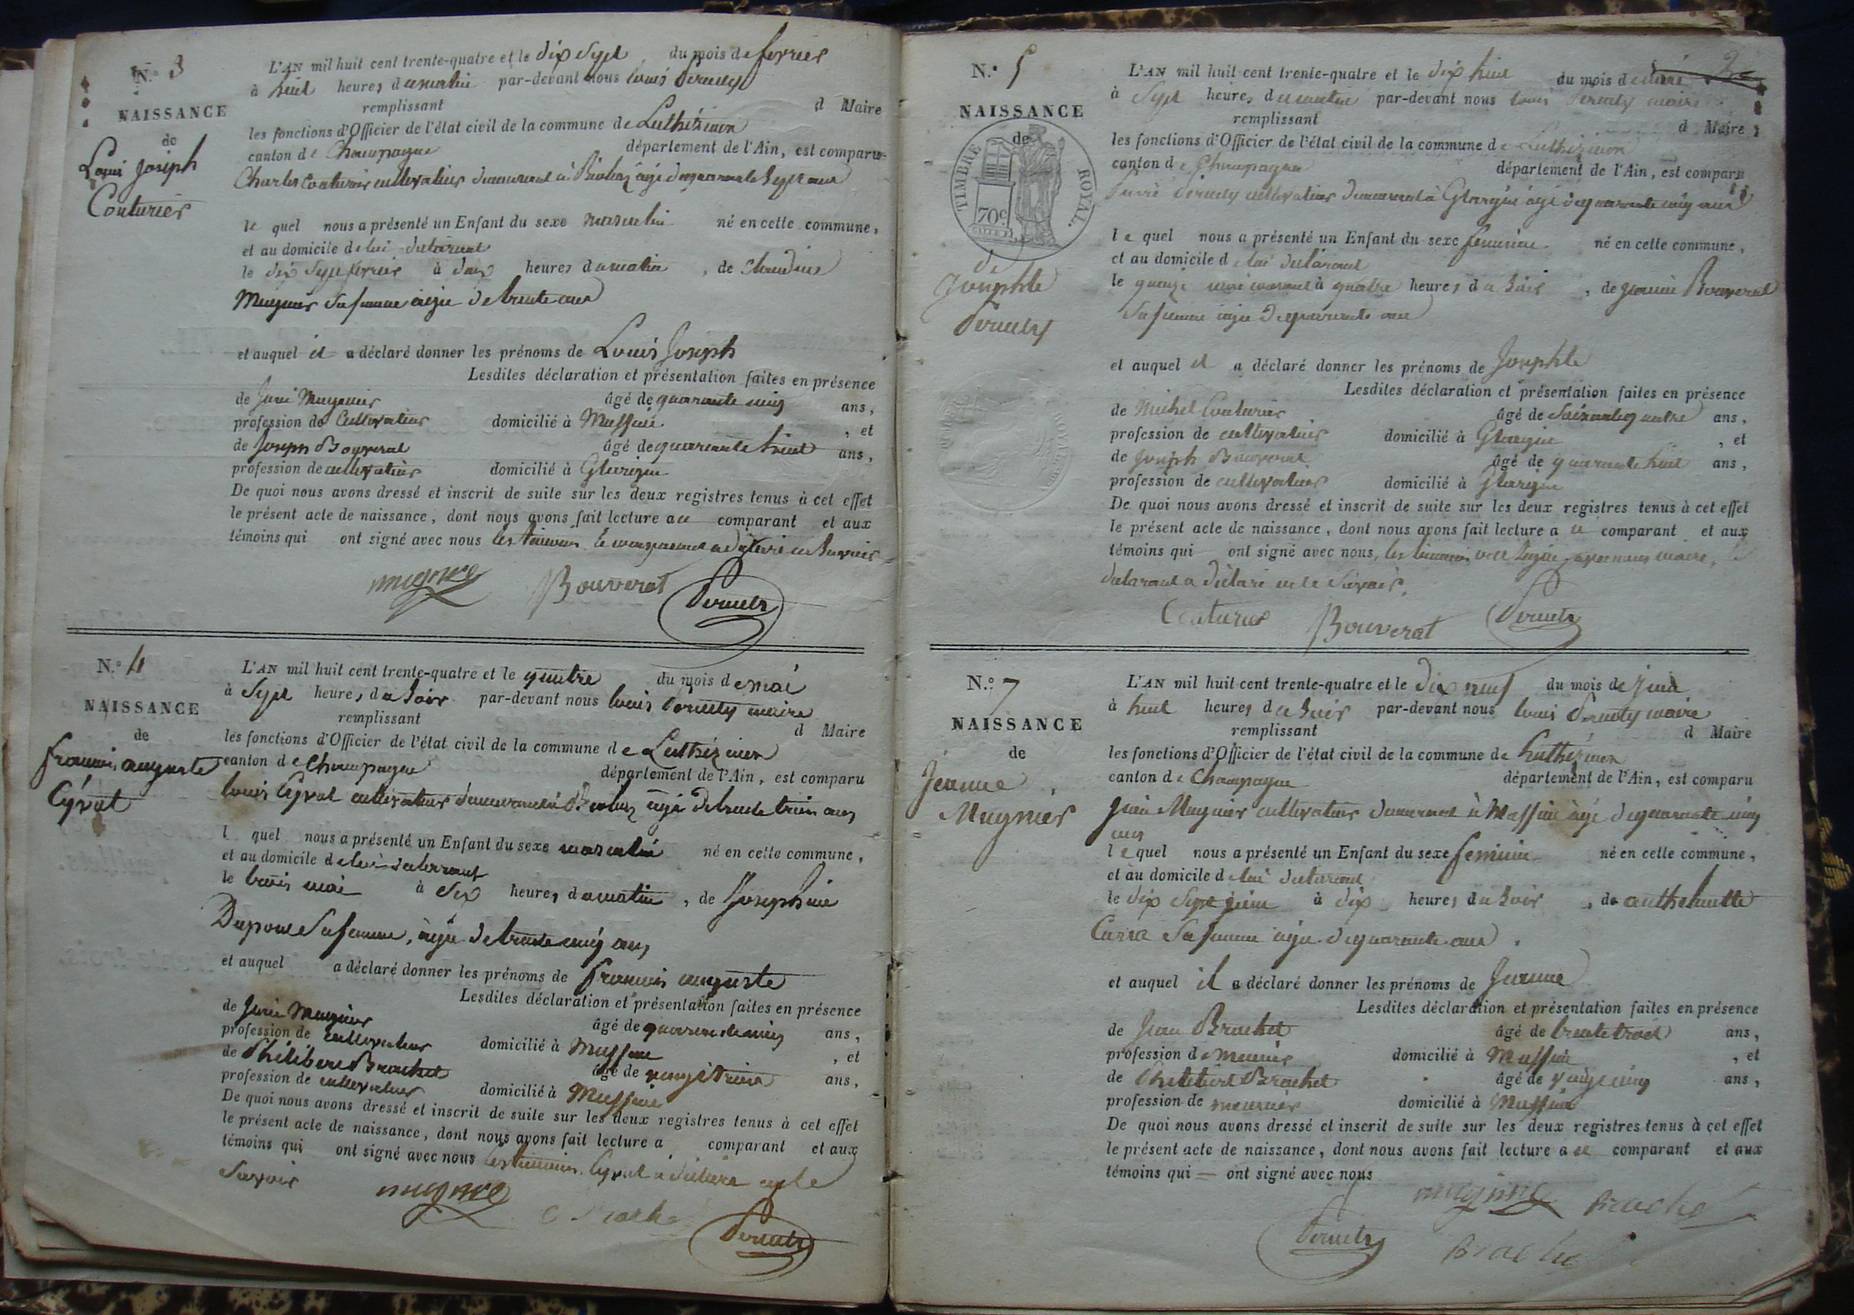 N.° 3
NAISSANCE
de
Louis Joseph
Couturier
L'AN mil huit cent trente-quatre et le dix Sept du mois de fevrier
à huit heures du matin par-devant nous Louis Peruely
remplissant d Maire
les fonctions d'Officier de l'état civil de la commune de Luthézieux
canton de Champagne département de l'Ain, est comparu
Charles Couturier cultivateur demeurant à agé de quarante Sept ans
le quel nous a présenté un Enfant du sexe masculin né en cette commune,
et au domicile de lui declarant
le dix Sept fevrier à deux heures du matin, de Claudine
Mugnier Sa femme agée de trente ans
et auquel il a déclaré donner les prénoms de Louis Joseph
Lesdites déclaration et présentation faites en présence
de Mugnier âgé de quarante cinq ans,
profession de Cultivateur domicilié à Massieu, et
de Joseph Bouverat âgé de quarante huit ans,
profession de cultivateur domicilié à
De quoi nous avons dressé et inscrit de suite sur les deux registres tenus à cet effet
le présent acte de naissance, dont nous avons fait lecture au comparant et aux
témoins qui ont signé avec nous les temoins le comparant a déclaré ne Savoir
mugnier Bouverat
N.° 4
NAISSANCE
de
françois auguste
Cyvat
L'AN mil huit cent trente-quatre et le quatre du mois de mai
à Sept heures du Soir par-devant nous Louis maire
remplissant d Maire
les fonctions d'Officier de l'état civil de la commune de Luthézieux
canton de Champagne département de l'Ain, est comparu
Louis Cyvat cultivateur demeurant à agé de trente trois ans
l quel nous a présenté un Enfant du sexe masculin né en cette commune,
et au domicile de lui declarant
le trois mai à dix heures du matin, de Josephine
Dupont Sa femme, agée de trente cinq ans
et auquel a déclaré donner les prénoms de françois auguste
Lesdites déclaration et présentation faites en présence
de Mugnier âgé de quarante cinq ans,
profession de cultivateur domicilié à Massieu, et
de Philibert Brachet âgé de ans,
profession de cultivateur domicilié à Massieu
De quoi nous avons dressé et inscrit de suite sur les deux registres tenus à cet effet
le présent acte de naissance, dont nous avons fait lecture a comparant et aux
témoins qui ont signé avec nous les temoins. Cyvat a déclaré ne le
Savoir
mugnier
N.° 5
NAISSANCE
de
TIMBRE ROYAL.
70c
Josephte
L'AN mil huit cent trente-quatre et le dix huit du mois de
à Sept heures du matin par-devant nous Louis maire
remplissant d Maire
les fonctions d'Officier de l'état civil de la commune de Luthézieux
canton de Champagne département de l'Ain, est comparu
cultivateur demeurant à agé de quarante cinq ans
le quel nous a présenté un Enfant du sexe feminin né en cette commune,
et au domicile de lui declarant
le quinze à quatre heures du Soir, de Bouverat
Sa femme agée de quarante ans
et auquel il a déclaré donner les prénoms de Josephte
Lesdites déclaration et présentation faites en présence
de Michel Couturier âgé de Soixante quatre ans,
profession de cultivateur domicilié à, et
de Joseph Bouverat âgé de quarante huit ans,
profession de cultivateur domicilié à
De quoi nous avons dressé et inscrit de suite sur les deux registres tenus à cet effet
le présent acte de naissance, dont nous avons fait lecture a ce comparant et aux
témoins qui ont signé avec nous, les temoins avec nous maire, le
declarant a déclaré ne le Savoir.
Couturier Bouverat
N.° 7
NAISSANCE
de
Jeanne
Mugnier
L'AN mil huit cent trente-quatre et le dix neuf du mois de juin
à huit heures du Soir par-devant nous Louis maire
remplissant d Maire
les fonctions d'Officier de l'état civil de la commune de Luthézieux
canton de Champagne département de l'Ain, est comparu
Mugnier cultivateur demeurant à Massieu agé de quarante cinq
ans
le quel nous a présenté un Enfant du sexe feminin né en cette commune,
et au domicile de lui declarant
le dix Sept juin à dix heures du Soir, de anthelmette
Sa femme agée de quarante ans.
et auquel il a déclaré donner les prénoms de Jeanne
Lesdites déclaration et présentation faites en présence
de Jean Brachet âgé de trente trois ans,
profession de meunier domicilié à Massieu, et
de Philibert Brachet âgé de vingt cinq ans,
profession de meunier domicilié à Massieu
De quoi nous avons dressé et inscrit de suite sur les deux registres tenus à cet effet
le présent acte de naissance, dont nous avons fait lecture a ce comparant et aux
témoins qui — ont signé avec nous
mugnier Brachet
Brachet